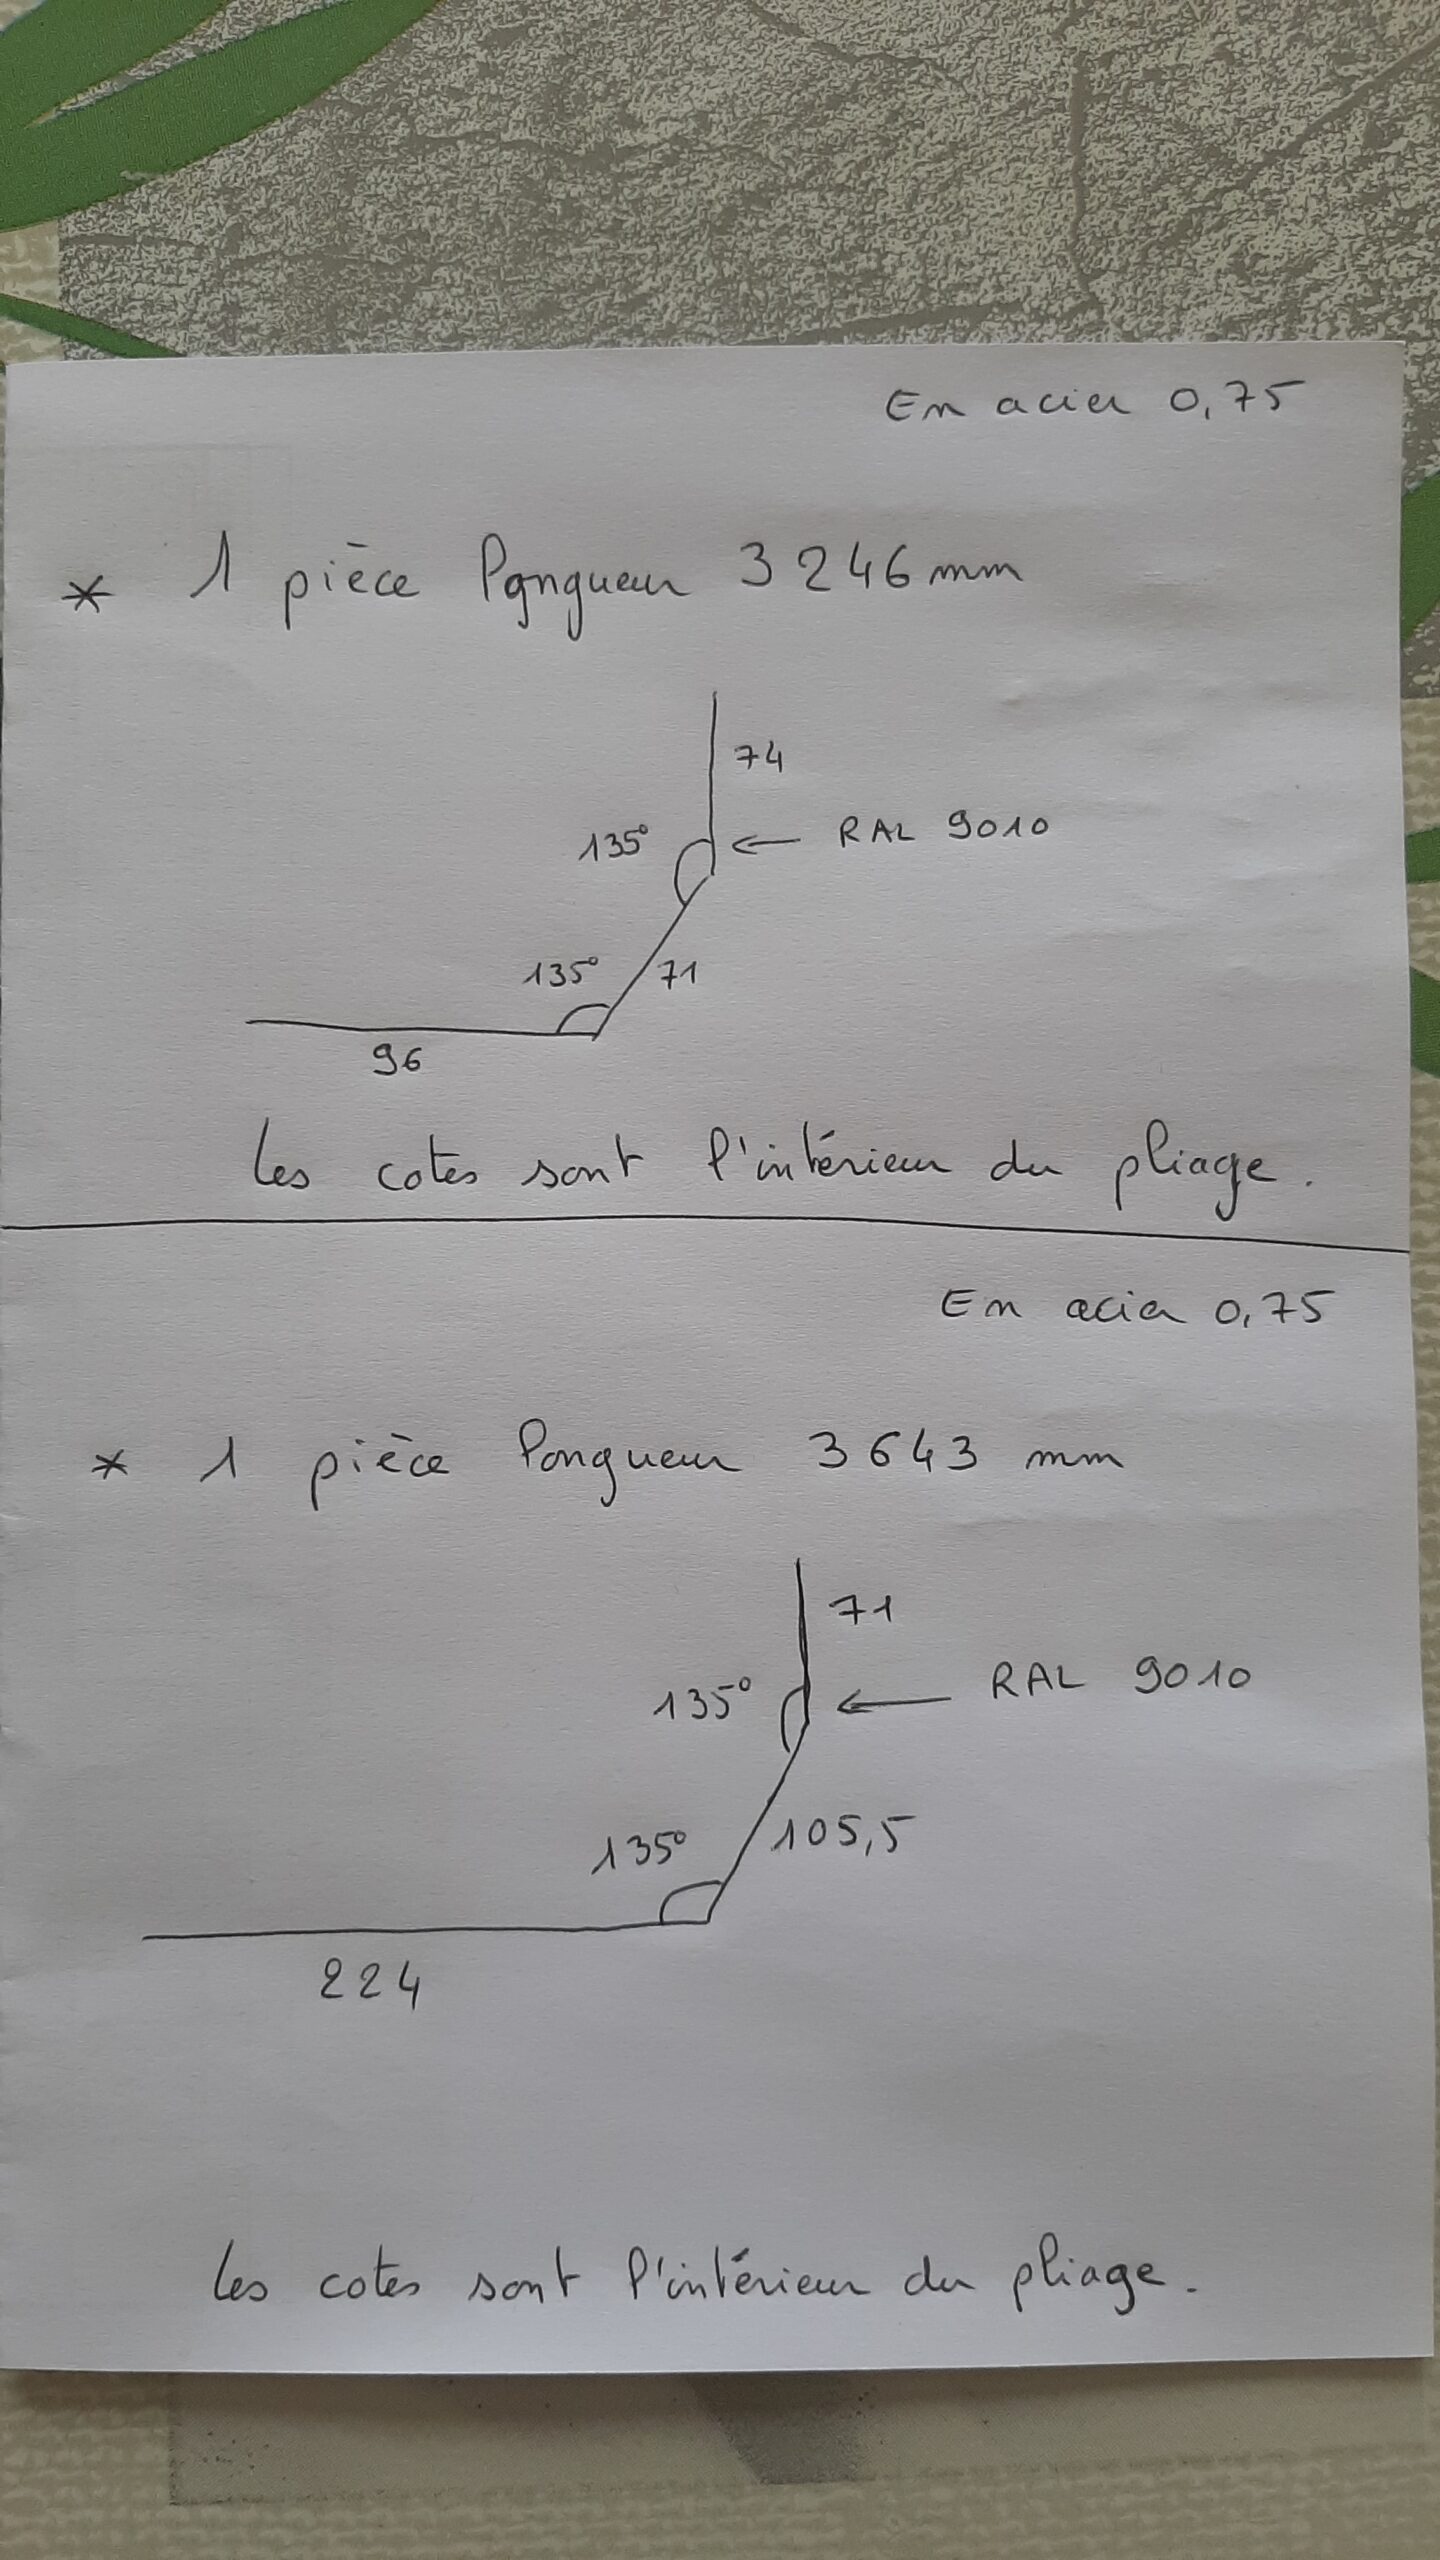 En acier 0,75
* 1 pièce longueur 3246mm
74
135° ← RAL 9010
135° 71
96
les cotes sont l'intérieur du pliage.
En acier 0,75
* 1 pièce longueur 3643 mm
71
135° ← RAL 9010
135° 105,5
224
les cotes sont l'intérieur du pliage.